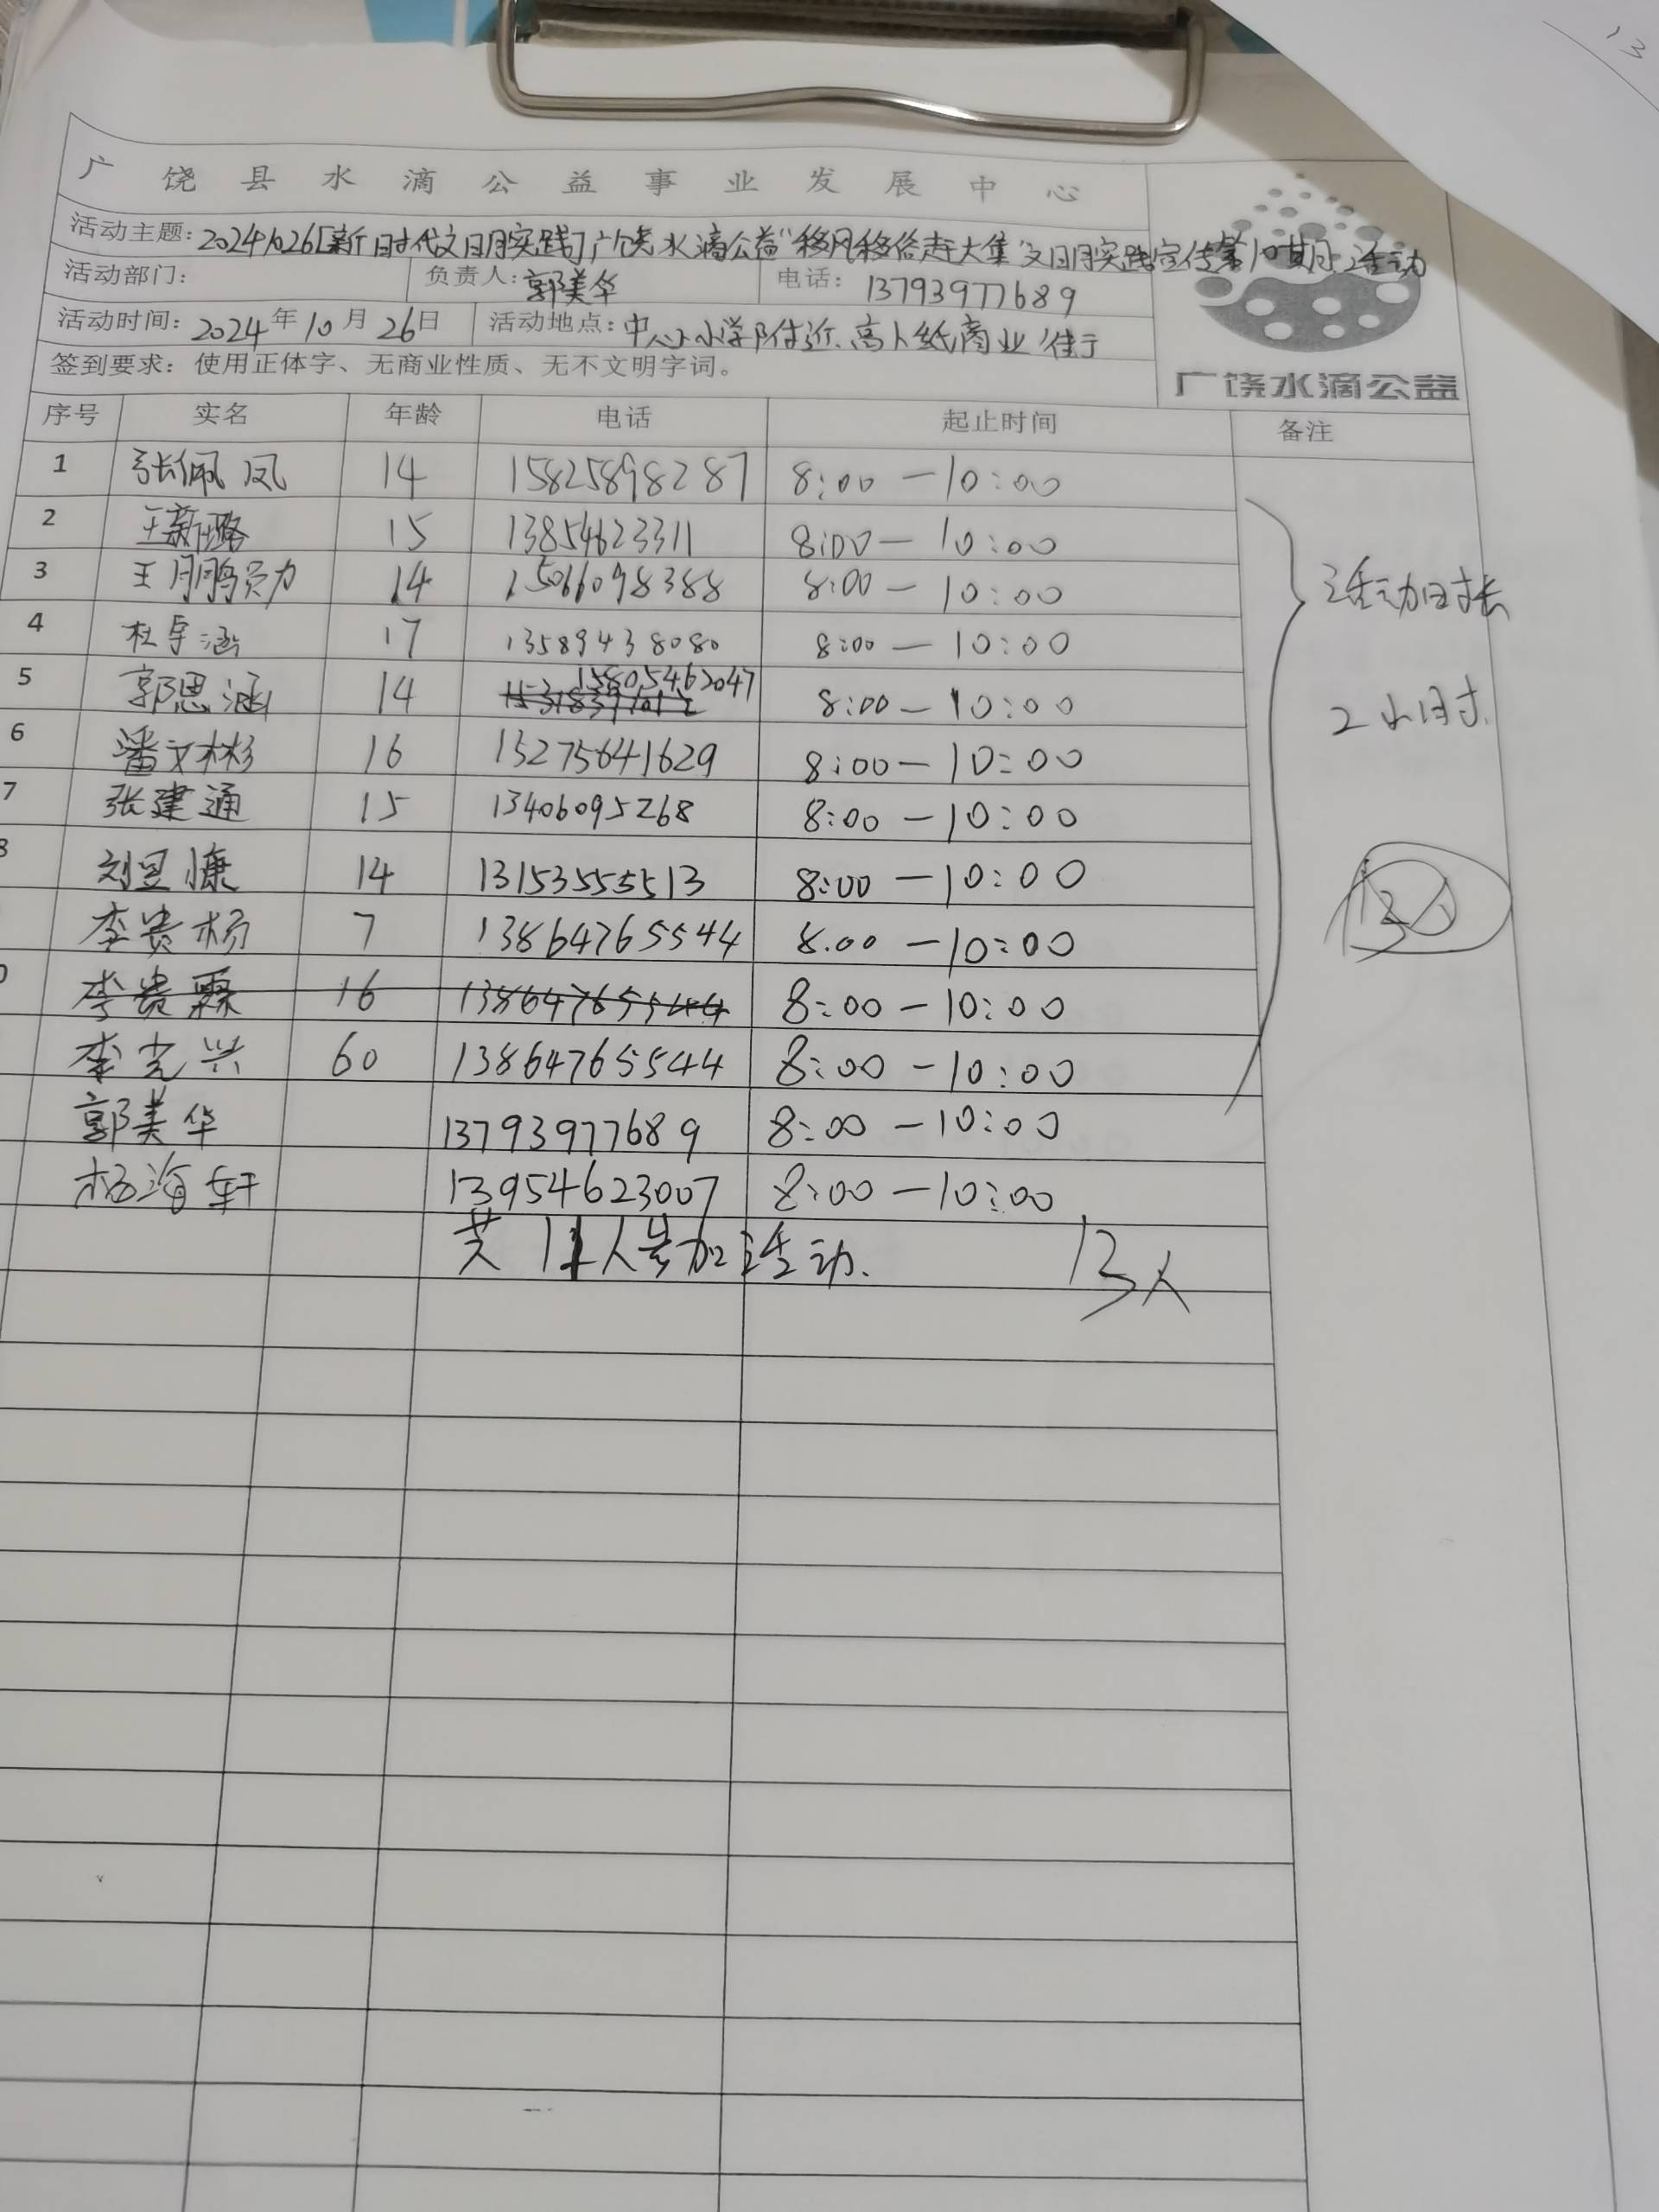 13
广饶县水滴公益事业发展中心
活动主题：20241026[新时代文明实践]广饶水滴公益"移风移俗赶大集"文明实践宣传第10期活动
活动部门： 负责人：郭美华 电话：13793977689
活动时间：2024年10月26日 活动地点：中心小学附近、高人纸商业街
签到要求：使用正体字、无商业性质、无不文明字词。
广饶水滴公益
序号 实名 年龄 电话 起止时间 备注
1 张佩凤 14 15825898287 8:00-10:00
2 王新璐 15 13854623311 8:00-10:00
3 王鹏勋 14 15066098388 8:00-10:00
活动时长
4 杜宇涵 17 13589438080 8:00-10:00
5 郭思涵 14 15805462047 8:00-10:00
2小时.
6 潘文彬 16 13275641629 8:00-10:00
7 张建通 15 13406095268 8:00-10:00
8 刘昱慷 14 13153555513 8:00-10:00
13人
李贵杨 7 13864765544 8:00-10:00
0 李贵霖 16 13864765544 8:00-10:00
李光兴 60 13864765544 8:00-10:00
郭美华 13793977689 8:00-10:00
杨海轩 13954623007 8:00-10:00
共11人参加活动. 13人